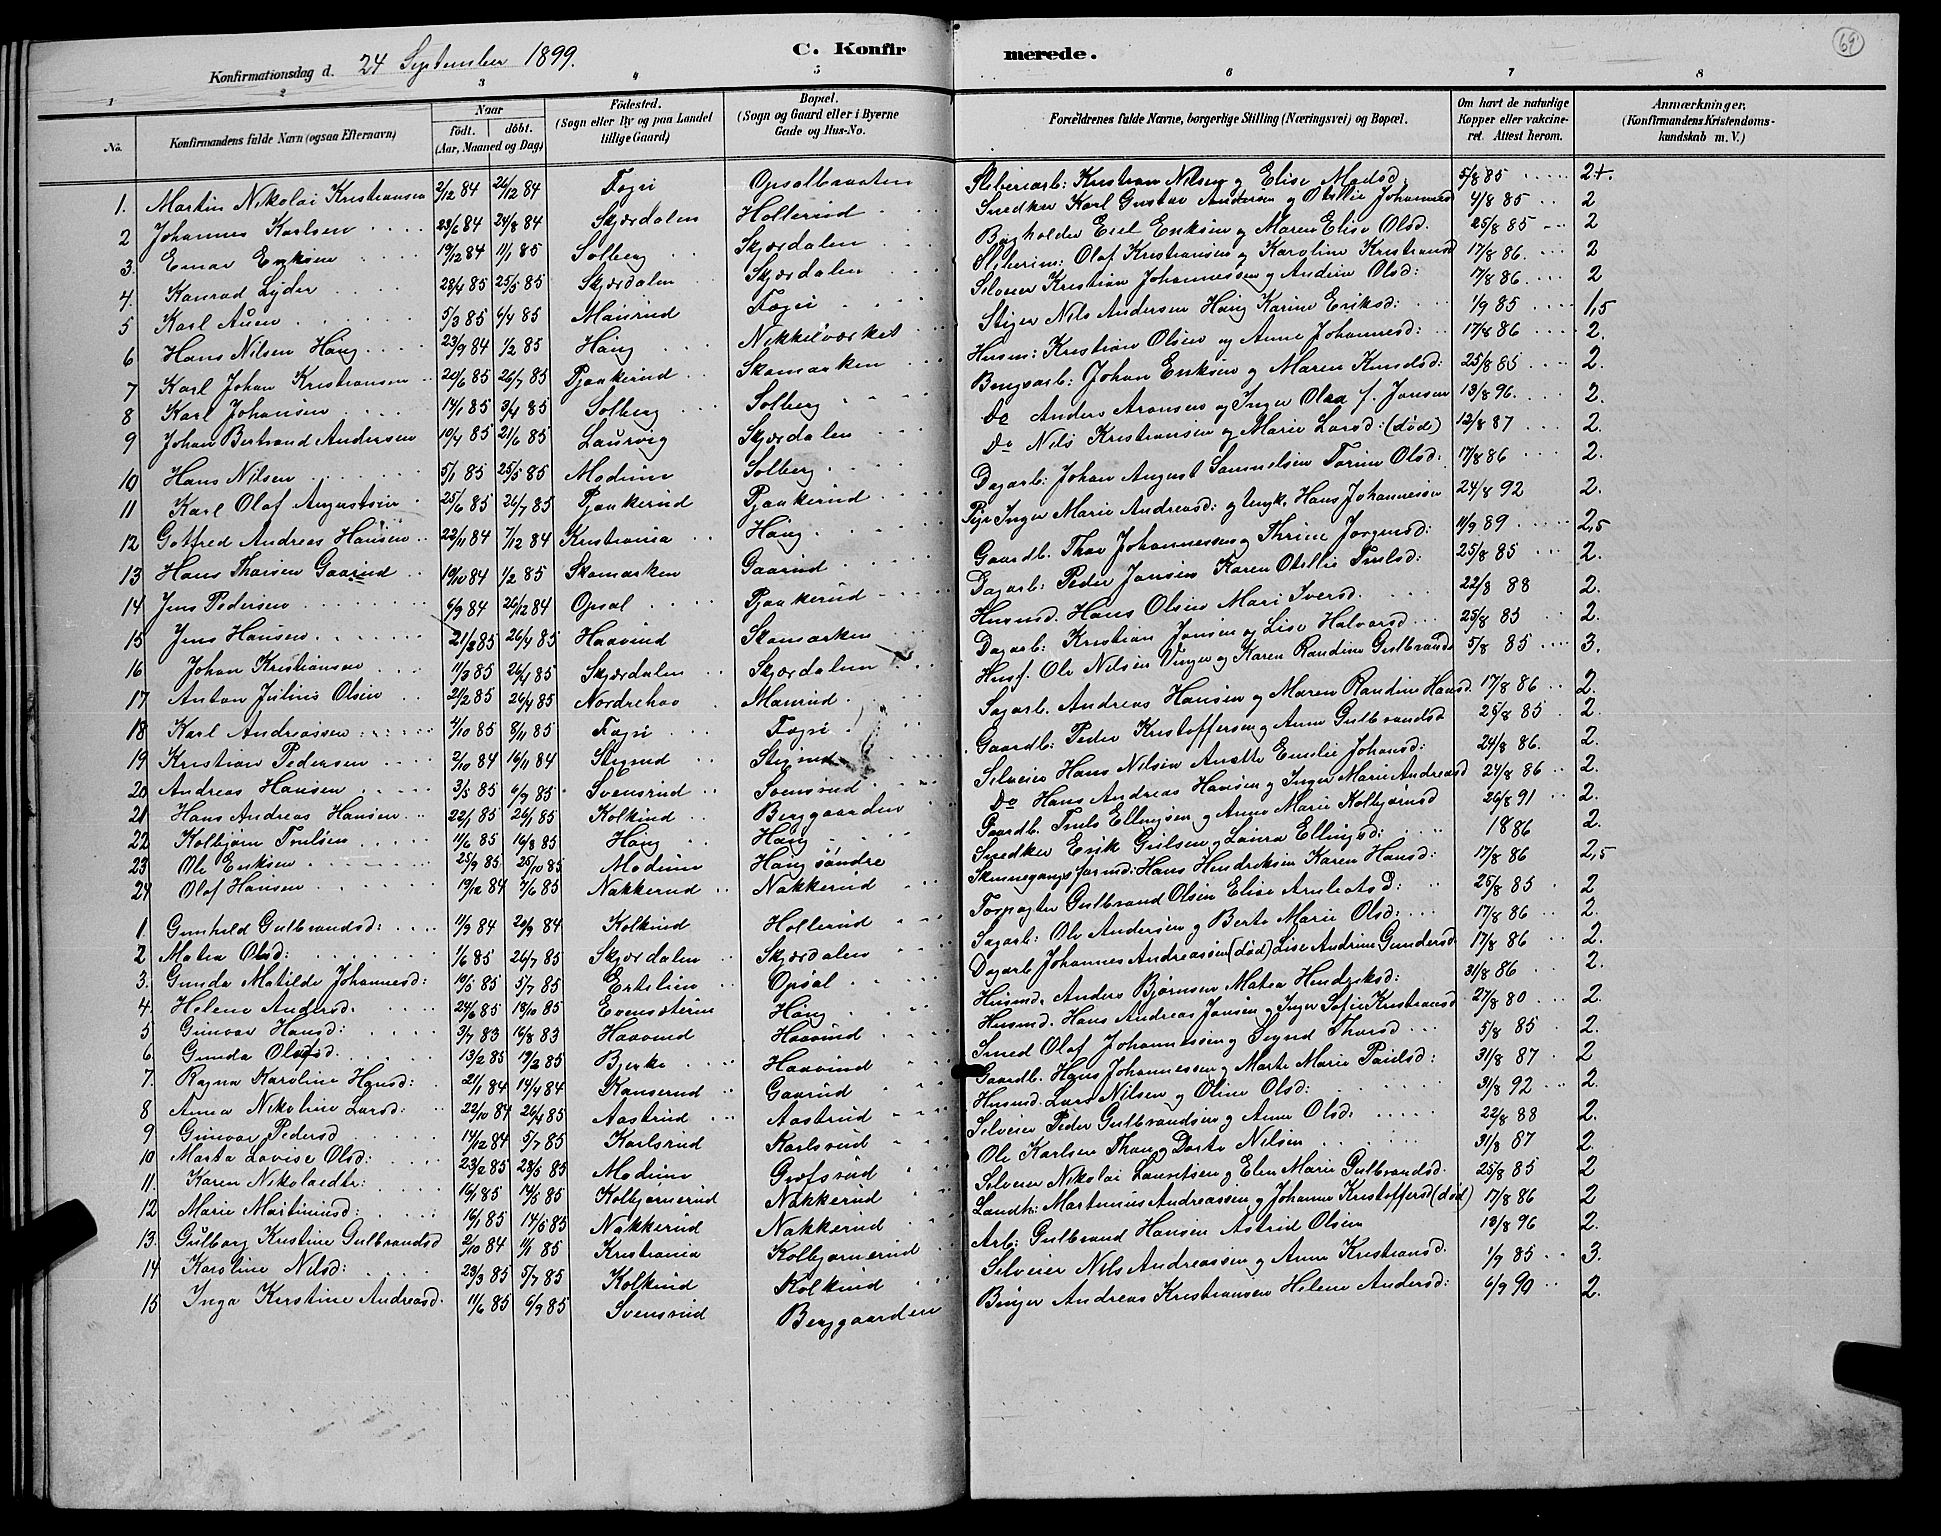 C. Konfirmerede.
69
Konfirmationsdag d. 24 September 1899.
1 2 3 4 5 6 7 8
No. Konfirmandens fulde Navn (ogsaa Efternavn) Naar født. døbt. (Aar, Maaned og Dag) Fødested. (Sogn eller By og paa Landet tillige Gaard) Bopæl. (Sogn og Gaard eller i Byerne Gade og Hus-No. Forældrenes fulde Navne, borgerlige Stilling (Næringsvei) og Bopæl. Om havt de naturlige Kopper eller vakcineret. Attest herom. Anmærkninger, (Konfirmandens Kristendomskundskab m. V.)
1. Martin Nikolai Kristiansen 2/12 84 26/12 84 Fagri Opsalbraaten Sliberiarb: Kristian Nilsen og Elise Madsd: 5/8 85 2+.
2 Johannes Karlsen 23/6 84 24/8 84 Skjærdalen Hollerud Snedker Karl Gustav Andersen og Otillie Johannesd 4/8 85 2
3. Einar Eriksen 19/12 84 11/1 85 Solberg Skjærdalen Bogholder Emil Eriksen og Maren Elise Olsd. 25/8 85 2
4. Konrad Lyder 28/4 85 25/5 85 Skjærdalen Skjærdalen Sliberim: Olaf Kristiansen og Karoline Kristiansd 17/8 86. 2
5 Karl Auen 5/3 85 6/4 85 Maurud Fagri Selveier Kristian Johannessen og Andrine Olsd: 17/8 86. 2
6 Hans Nilsen Haug 23/9 84 1/2 85 Haug Nikkelværket Stiger Nils Andersen Haug Karine Eriksd: 1/9 85 1,5
7 Karl Johan Kristiansen 20/6 85 26/7 85 Pjaakerud Skamarken Husm: Kristian Olsen og Anne Johannesd: 17/8 86 2.
8 Karl Johansen 14/1 85 3/4 85 Solberg Solberg Bergarb: Johan Eriksen og Maren Knudsd: 25/8 85 2.
9 Johan Bertrand Andersen 19/4 85 21/6 85 Laurvig Skjærdalen Do Anders Aronsen og Inger Olea f. Jonsen 13/8 96. 2.
10 Hans Nilsen 5/1 85 25/5 85 Modum Solberg Do Nils Kristiansen og Marie Larsd: (død) 12/8 87 2.
11 Karl Olaf Augustsen 25/6 85 26/7 85 Pjaakerud Pjaakerud Dagarb: Johan August Samuelsen Torine Olsd: 17/8 86 2.
12 Gotfred Andreas Hansen 22/11 84 7/12 84 Kristiania Haug Pige Inger Marie Andreasd: og Ungk. Hans Johannesen 24/8 92 2.
13 Hans Thorsen Gaarud 19/10 84 1/2 85 Skamarken Gaarud Gaardb. Thor Johannessen og Thrine Jørgensd: 11/9 89 2,5
14 Jens Pedersen 6/9 84 26/12 84 Opsal Pjaakerud Dagarb: Peder Jansen Karen Otillie Trulsd: 25/8 85 2.
15 Jens Hansen 21/2 85 26/4 85 Haavind Skamarken Husmd. Hans Olsen Mari Iversd. 22/8 88 2.
16 Johan Kristiansen 11/3 85 26/4 85 Skjærdalen Skjærdalen Dagarb: Kristian Jonsen og Lise Halvorsd 25/8 85 2.
17 Anton Julius Olsen 21/2 85 26/4 85 Norderhov Maurud Husf. Ole Nilsen Unger og Karen Randine Gulbrandsd 5/8 85 3.
18 Karl Andreassen 4/10 85 8/11 85 Fagri Fagri Sagarb. Andreas Hansen og Maren Randine Hansd 17/8 86 2.
19 Kristian Pedersen 2/10 84 16/11 84 Stigrud Stigrud Gaardb: Peder Kristoffersen og Anne Gulbrandsd 25/8 85 2.
20 Andreas Hansen 3/5 85 6/9 85 Svensrud Svensrud Selveier Hans Nilsen Anette Emilie Johansd: 24/8 86. 2.
21 Hans Andreas Hansen 22/1 85 26/1 85 Kolkind Berggaarden Do Hans Andreas Hansen og Inger Marie Andreasd 24/8 86 2.
22 Kolbjørn Trulsen 11/6 85 16/8 85 Haug Haug Gaardb. Truls Ellingsen og Anne Marie Kolbjørnsd 26/8 91 2.
23 Ole Eriksen 25/9 85 25/10 85 Modum Haug søndre Snedker Erik Gulsen og Laura Ellingsd: 1886 2.
24 Olaf Hansen 19/12 84 7/6 85 Nakkerud Nakkerud Skinnegangsformd: Hans Hendriksen Karen Hansd: 17/8 86 2,5
1. Gunhild Gulbrandsd: 11/9 84 20/9 84 Kolkind Hollerud Torpagter Gulbrand Olsen Elise 25/8 85 2
2 Matea Olsd: 1/6 85 26/7 85 Skjærdalen Skjærdalen Sagarb: Ole Andersen og Berte Marie Olsd: 17/8 86 2.
3. Gunda Matilde Johannesd: 19/5 85 5/7 85 Ertelien Opsal Dagarb Johannes Andreassen (død) Lise Andrine Gundersd 17/8 86 2.
4. Helene Andersd: 24/6 85 19/10 85 Evensæteren Haug Husmd. Anders Bjørnsen Matea Hendriksd: 31/8 86 2.
5 Gunvor Hansd: 3/7 83 16/8 83 Haavind Haavind Husmd. Hans Andreas Jansen og Inger Sofie Kristiansd 27/8 80 2.
6 Gunda Olafsd. 13/2 85 19/2 85 Bjerke Haavind Smed Olaf Johannessen og Signd Thorsd 5/8 85 2.
7. Ragna Karoline Hansd: 21/1 84 14/4 84 Kanserud Gaarud Gaardb. Hans Johannessen og Marte Marie Paulsd: 31/8 87 2
8 Anna Nikoline Larsd: 22/10 84 26/4 85 Aastrud Aastrud Husmd. Lars Nilsen og Oline Olsd: 31/8 92 2.
9 Gunvor Pedersd 14/12 84 5/7 85 Karlsrud Karlsrud Selveier Peder Gulbrandsen og Anne Olsd. 22/8 88 2.
10 Marta Lovise Olsd: 23/2 85 28/5 85 Modum Grøfsrud Ole Karlsen Thon og Dorte Nilsen 31/8 87 2.
11. Karen Nikolaedtr: 19/1 85 14/5 85 Kolbjørnerud Nakkerud Selveier Nikolai Lauritsen og Elen Marie Gulbrandsd. 25/8 85 2
12 Marie Martinusd: 16/1 85 14/5 85 Nakkerud Nakkerud Landh: Martinius Andreassen og Johanne Kristoffersd (død) 17/8 86 2
13. Gulborg Kristine Gulbrandsd 2/10 84 1/1 85 Kristiania Kolbjørnerud Arb: Gulbrand Hansen Astrid Olsen 13/8 96 2.
14 Karoline Nilsd: 23/3 85 5/7 85 Kolkind Kolkind Selveier Nils Andreassen og Anne Kristiansd. 1/9 85 3.
15 Inga Kirstine Andreasd. 11/6 85 6/9 85 Svensrud Berggaarden Bruger Andreas Kristiansen Helene Andersd: 6/9 90 2.